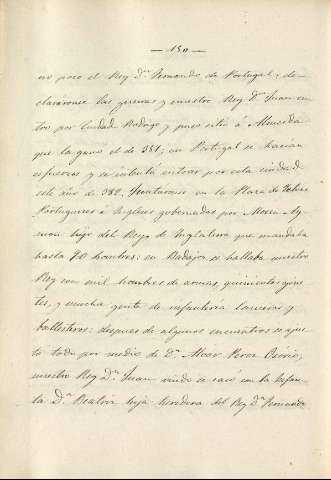 — 150 —
no poco el Rey D.ⁿ Fernando de Portugal, de-
claráronse las guerras y nuestro Rey D.ⁿ Juan en-
tró por Ciudad Rodrigo y puso sitio á Almeida
que la ganó el de 381; en Portugal se hacian
esfuerzos y se intentó entrar por esta ciudad
este año de 382. Juntaronse en la Plaza de Yelves
Portugueses e Ingleses gobernados por Mosen Ay-
mon hijo del Rey de Inglaterra que mandaba
hasta hombres: en Badajoz se hallaba nuestro
Rey con mil hombres de armas, quinientos gine-
tes, y mucha gente de infanteria lanceros y
ballesteros: despues de algunos encuentros se ajus-
tó todo por medio de D.ⁿ Alvar Perez Osorio;
nuestro Rey D.ⁿ Juan viudo se casó con la Infan-
ta D.ª Beatriz hija heredera del Rey D.ⁿ Fernando